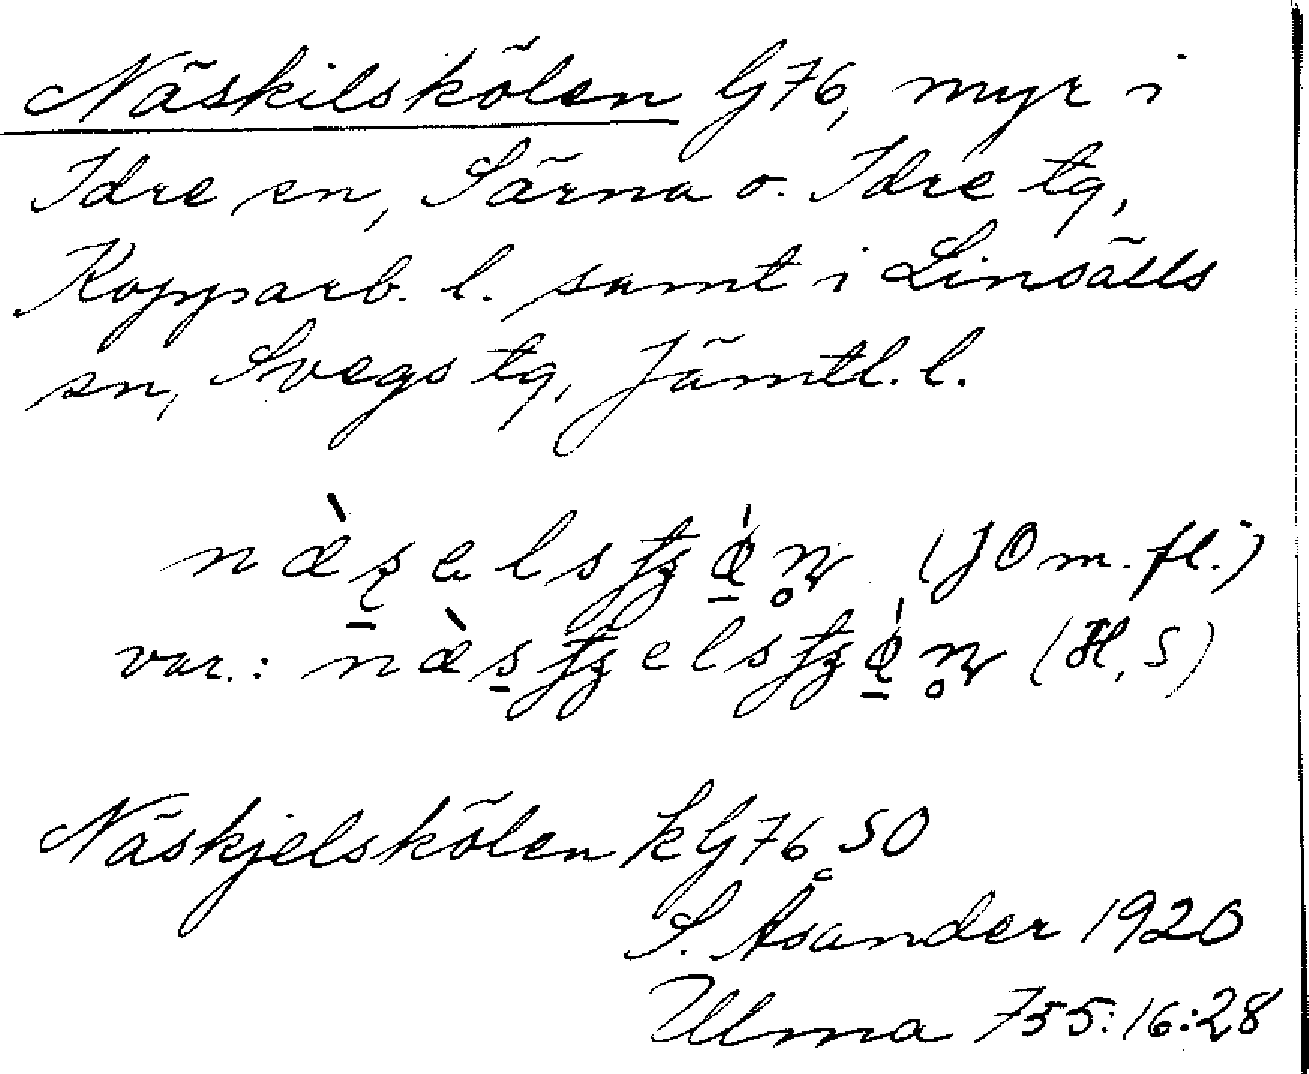 Näskilskölen G76, myr i
Idre sn, Särna o. Idre tg,
Kopparb. l. samt i Linsälls
sn, Svegs tg, Jämtl. l.
(JO m. fl.)
var.: (H, S)
Näskjelskölen kG76 SO
S. Åsander 1920
Ulma 755:16:28